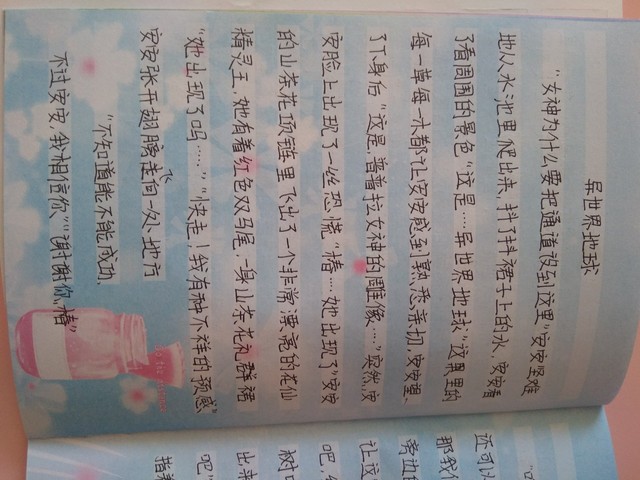 异世界地球
"女神为什么要把通道设到这里"安安坚难
地从水池里爬出来,抖了抖裙子上的水,安安看
了看周围的景色"这是…异世界地球"这里的
每一草每一木都让安安感到熟悉亲切,安安理、
了下身后"这是普普拉女神的雕像…"突然,安
安脸上出现了一丝恐慌"椿…她出现了"安安
的山茶花项链里飞出了一个非常漂亮的花仙
精灵王,她有着红色双马尾.一身山茶花礼群裙
"她出现了吗……""快走!我有种不祥的预感"
安安张开翅膀飞向一处地方
"不知道能不能成功、
不过安安,我相信你""谢谢你,椿"
还可
那我
旁边的
让这
吧
树
出来
吧"
指着